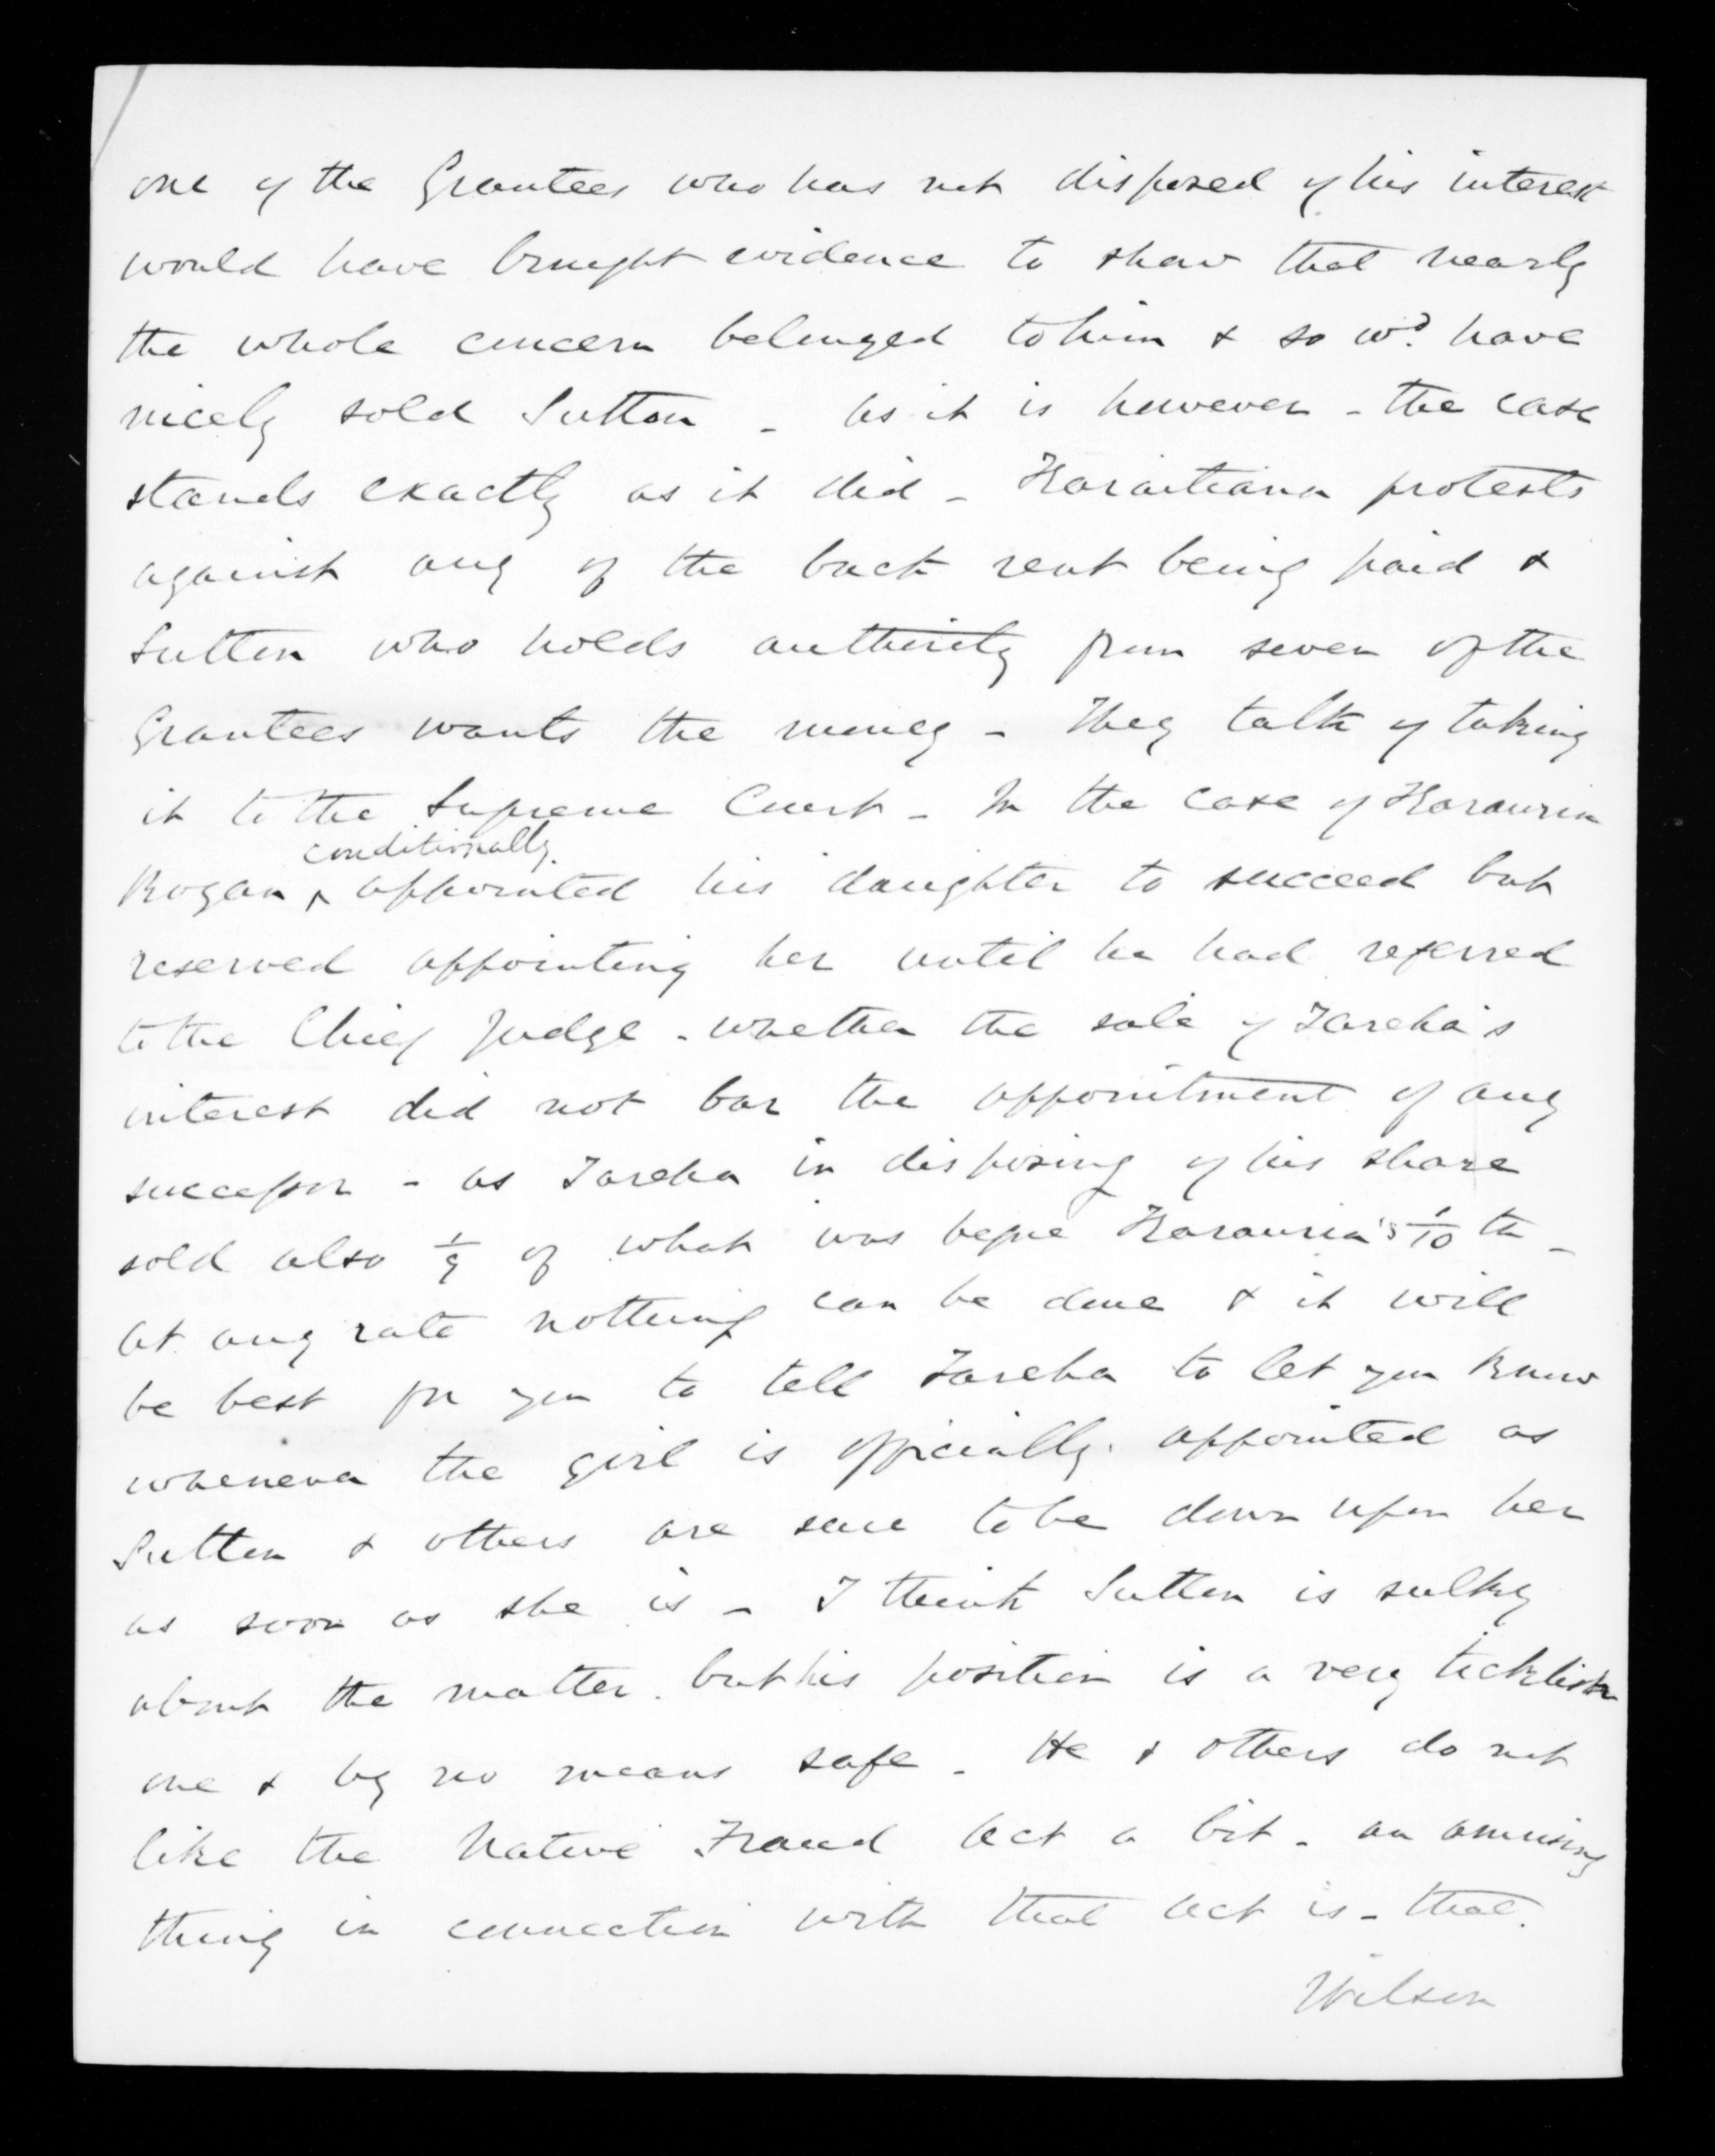 one of the Grantees who has not disposed of his interest
would have brought evidence to show that nearly
the whole concern belonged to him & so wd. have
nicely sold Sutton - As it is however - the case
stands exactly as it did - Karaitiana protests
against any of the back rent being paid &
Sutton who holds authority from seven of the
Grantees wants the money - They talk of taking
it to the Supreme Court - In the case of Karauria
conditionally
Rogan ^ appointed his daughter to succeed but
reserved appointing her until he had referred
to the Chief Judge - whether the sale of Tareha's
interest did not bar the appointment of any
successor - as Tareha in disposing of his share
sold also 1/9 of what was before Karauria's 1/10 th -
At any rate nothing can be done & it will
be best for you to tell Tareha to let you know
whenever the girl is officially appointed as
Sutton & others are sure to be down upon her
as soon as she is - I think Sutton is sulky
about the matter. but his position is a very ticklish
one & by no means safe - He & others do not
like the Native Fraud Act a bit - an amusing
thing in connection with that Act is - that.
Wilson